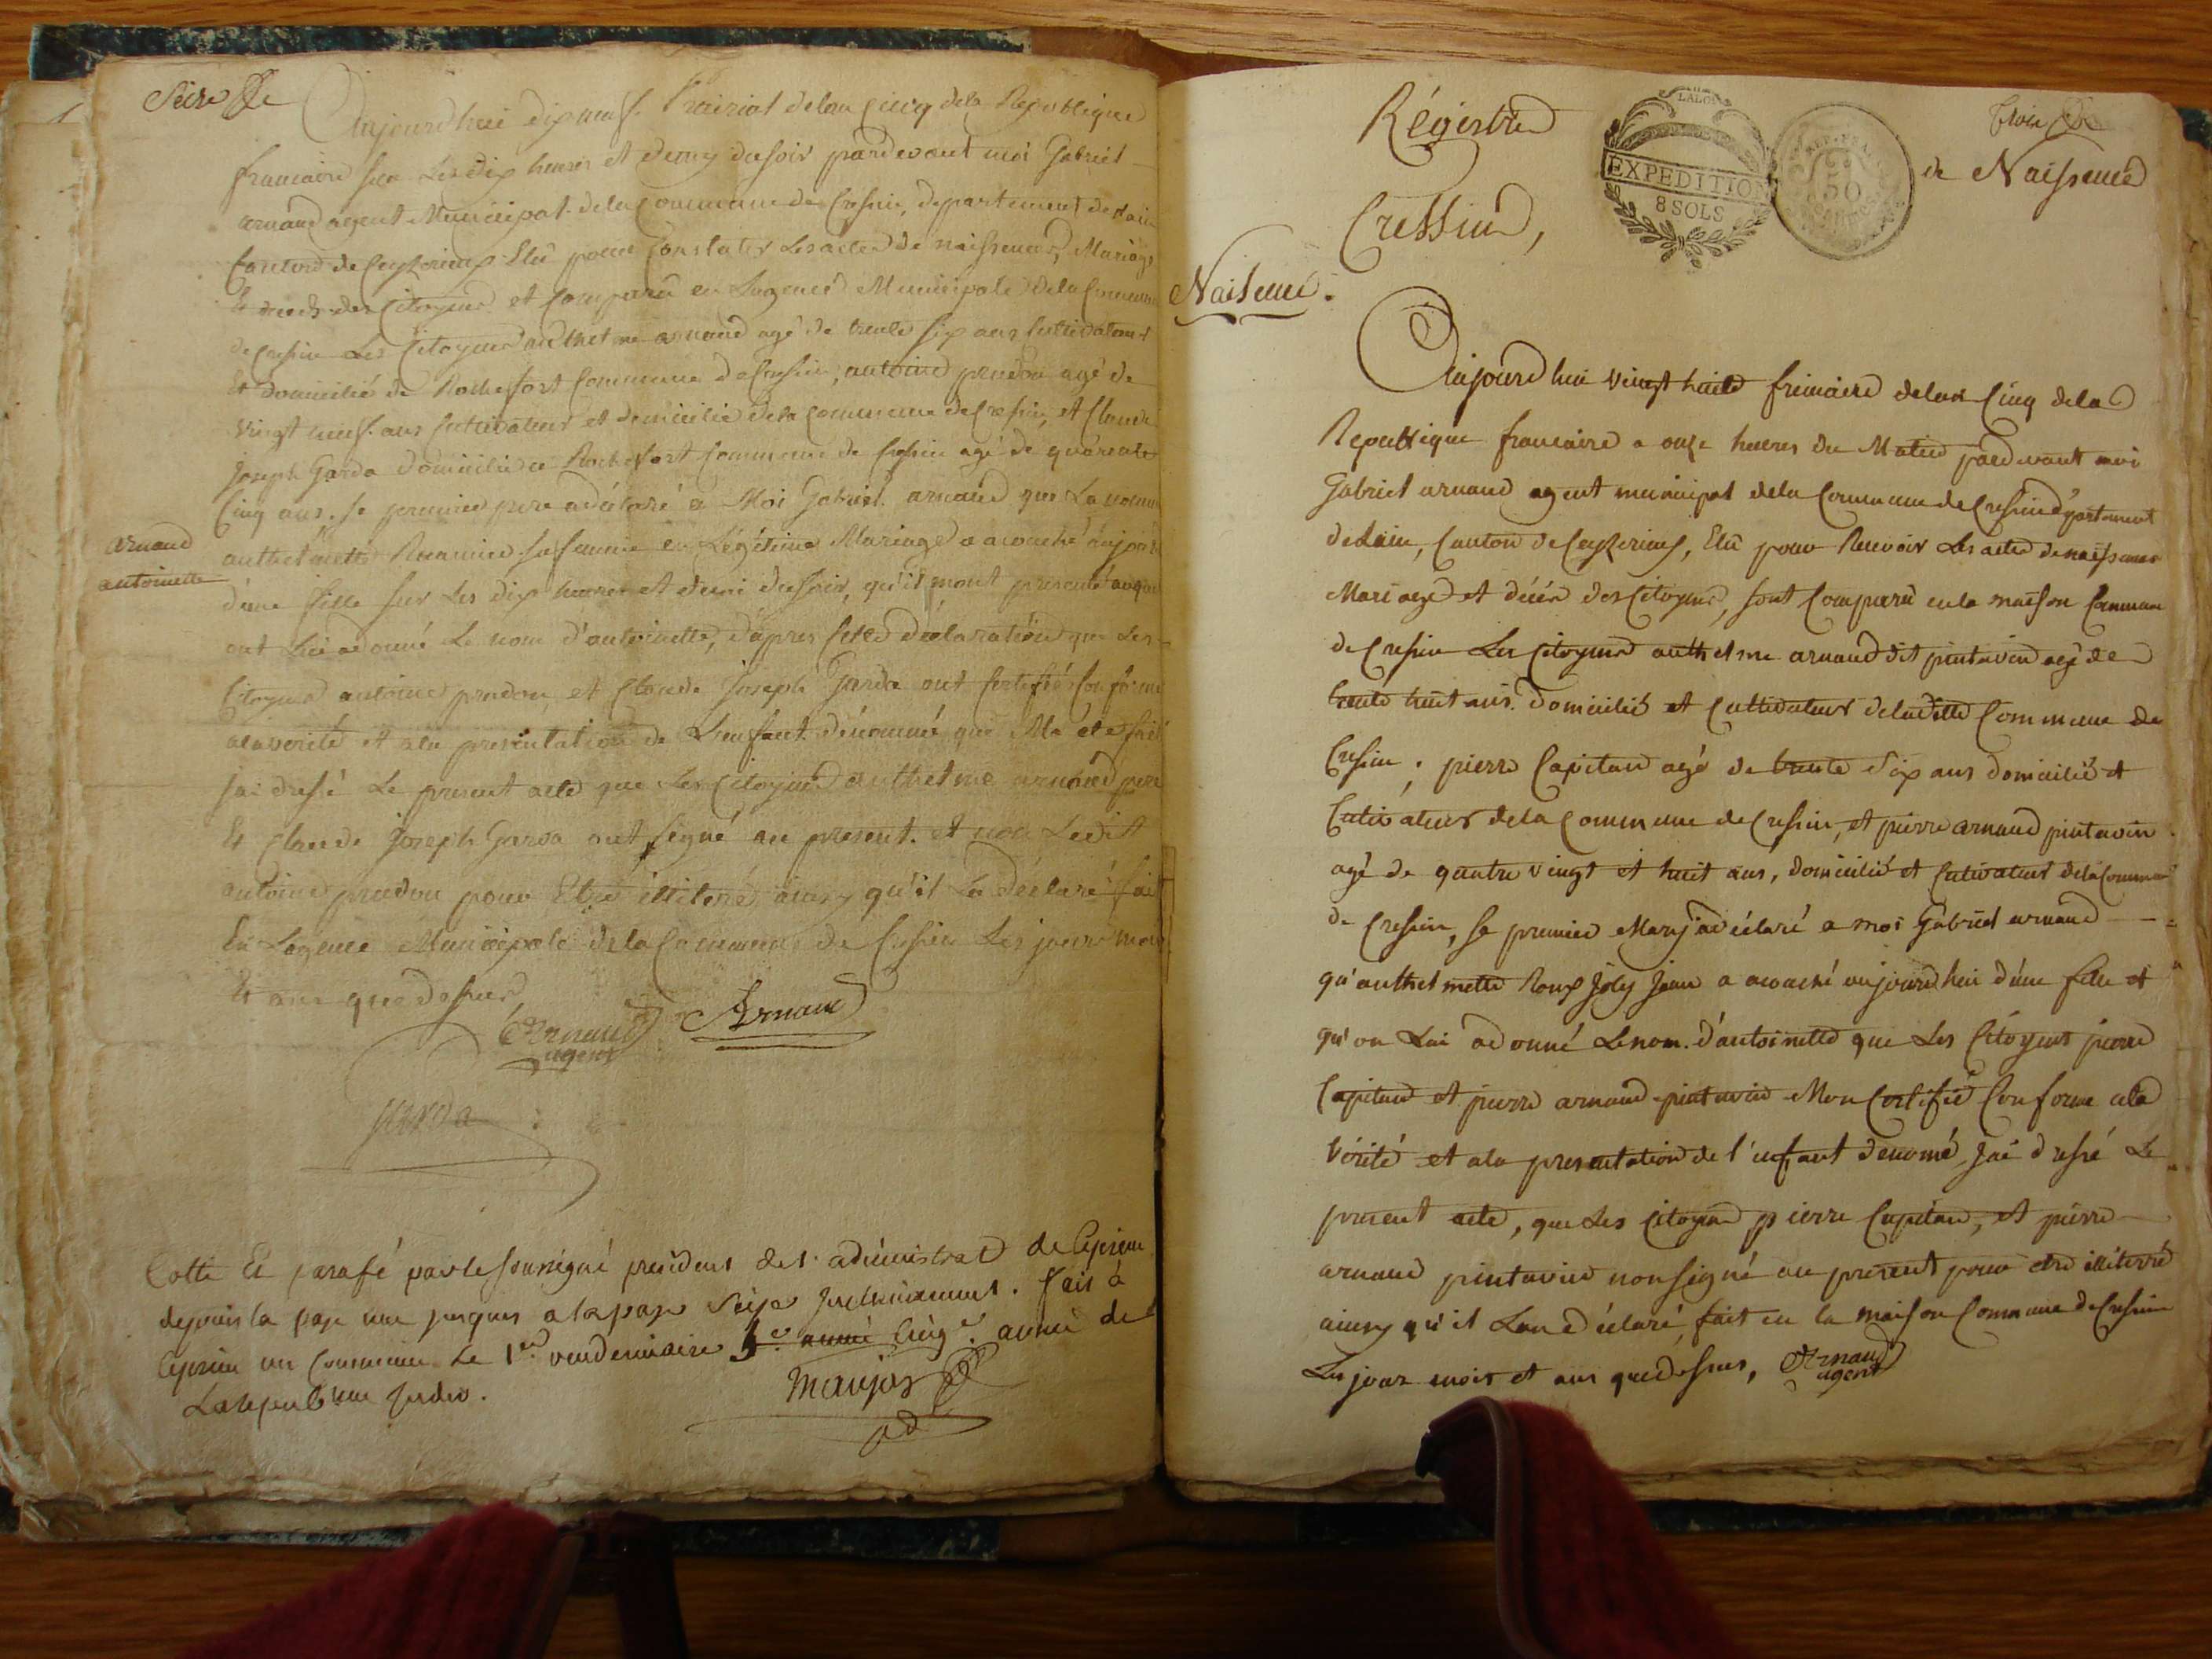 Seize
Aujourd'hui dix neuf Prairial delan Cinq dela Republique
francaise sur Les dix heures et demy du soir pardevant moi Gabriel
arnaud agent Municipal dela Commune de Cressin, departement de Lain
Canton de Ceyzerieux Elû pour Constater Les actes de naissences, Mariage
Et decès des Citoyens et Comparu en Lagence Municipale dela Commune
de Cressin Les Citoyens anthelme arnaud agé de trente six ans Cultivateur
Et domicilié de Rochefort Commune de Cressin, antoine prudon agé de
vingt neuf ans Cultivateur et domicilié dela Commune de Cressin, et Claude
Joseph Garda domicilié a Rochefort Commune de Cressin agé de quarente
Cinq ans. Le premier pere a déclaré a Moi Gabriel arnaud que La nomé
arnaud
antoinette
anthelmette sa femme en Légitime Mariage a acouché aujourd
d'une fille sur Les dix heures et demi du soir, qu'il mont presenté auquel
ont Lui a donné Le nom d'antoinette, d'apres Cette déclaration que Les
Citoyens antoine prudon et Claude Joseph Garda ont Certifié Conforme
alaverité et ala presentation de Lenfant dénommé que Ma été fait
jai dressé Le present acte que Les Citoyens anthelme arnaud pere
Et Claude Joseph Garda ont signé au present. et non Ledit
antoine prudon pour Etre illiteré ainsy qu'il La déclaré fait
En Lagence Municipale dela Commune de Cressin Les jour mois
Et ans que dessus,
Arnaud
agent
Arnaud
garda
Cotté Et parafé par le sousigné president de l'administrat de Ceyzerieu
depuis la page une jusques a la page Seize Inclusivement. fait à
Ceyzerieu Le 1er vendemiaire 5e année Cinqe année de
La republique
Maujot
Régistre
Cressin,
LALOI
EXPEDITION
8 SOLS
REP. FRA
50
CENTIMES
Trois
de Naissence
Naisence.
Aujourd'hui vingt huite frimaire delan Cinq dela
Republique francaise a onze heures du Matin pardevant moi
Gabriel arnaud agent municipal dela Commune de Cressin departement
de Lain, Canton de Ceyzerieux, Elû pour Recevoir Les actes denaissences
Mariages et décés des Citoyens, sont Comparu enla maison Commune
de Cressin Les Citoyens anthelme arnaud dit pintavin agé de
trente huit ans. domicilié et Cultivateur deladitte Commune de
Cressin; pierre Capitan agé de trente six ans domicilié et
Cultivateur dela Commune de Cressin, et pierre arnaud pintavin
agé de quatre vingt et huit ans, domicilié et Cultivateur dela Commune
de Cressin, Le premier Mary a déclaré a moi Gabriel arnaud
qu'anthelmette Roux Joly Jean a acouché aujourd'hui d'une fille et
qu'on Lui a donné Lenom d'antoinette que Les Citoyens pierre
Capitan et pierre arnaud pintavin Mon Certifié Conforme ala
Vérité et ala presentation de l'enfant denomé Jai dressé Le
present acte, que Les Citoyens pierre Capitan, et pierre
arnaud pintavin nonsigné au present pour etre illiterré
ainsy qu'il Lon déclaré, fait en la maison Commune de Cressin
Les jour mois et ans quedessus,
Arnaud
agent